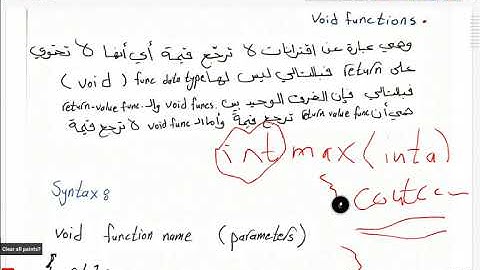 Void functions .
وهي عبارة عن اقترانات لا ترجع قيمة أي أنها لا تحتوي
على return فبالتالي ليس لها func data type ( void )
فبالتالي فإن الفرق الوحيد بين void funcs. والـ return-value func.
هي أن return value func ترجع قيمة وأما الـ void func لا ترجع قيمة
int max (int a)
{ cout<<
Syntax :
void function name (parameters)
Clear all paints?
{